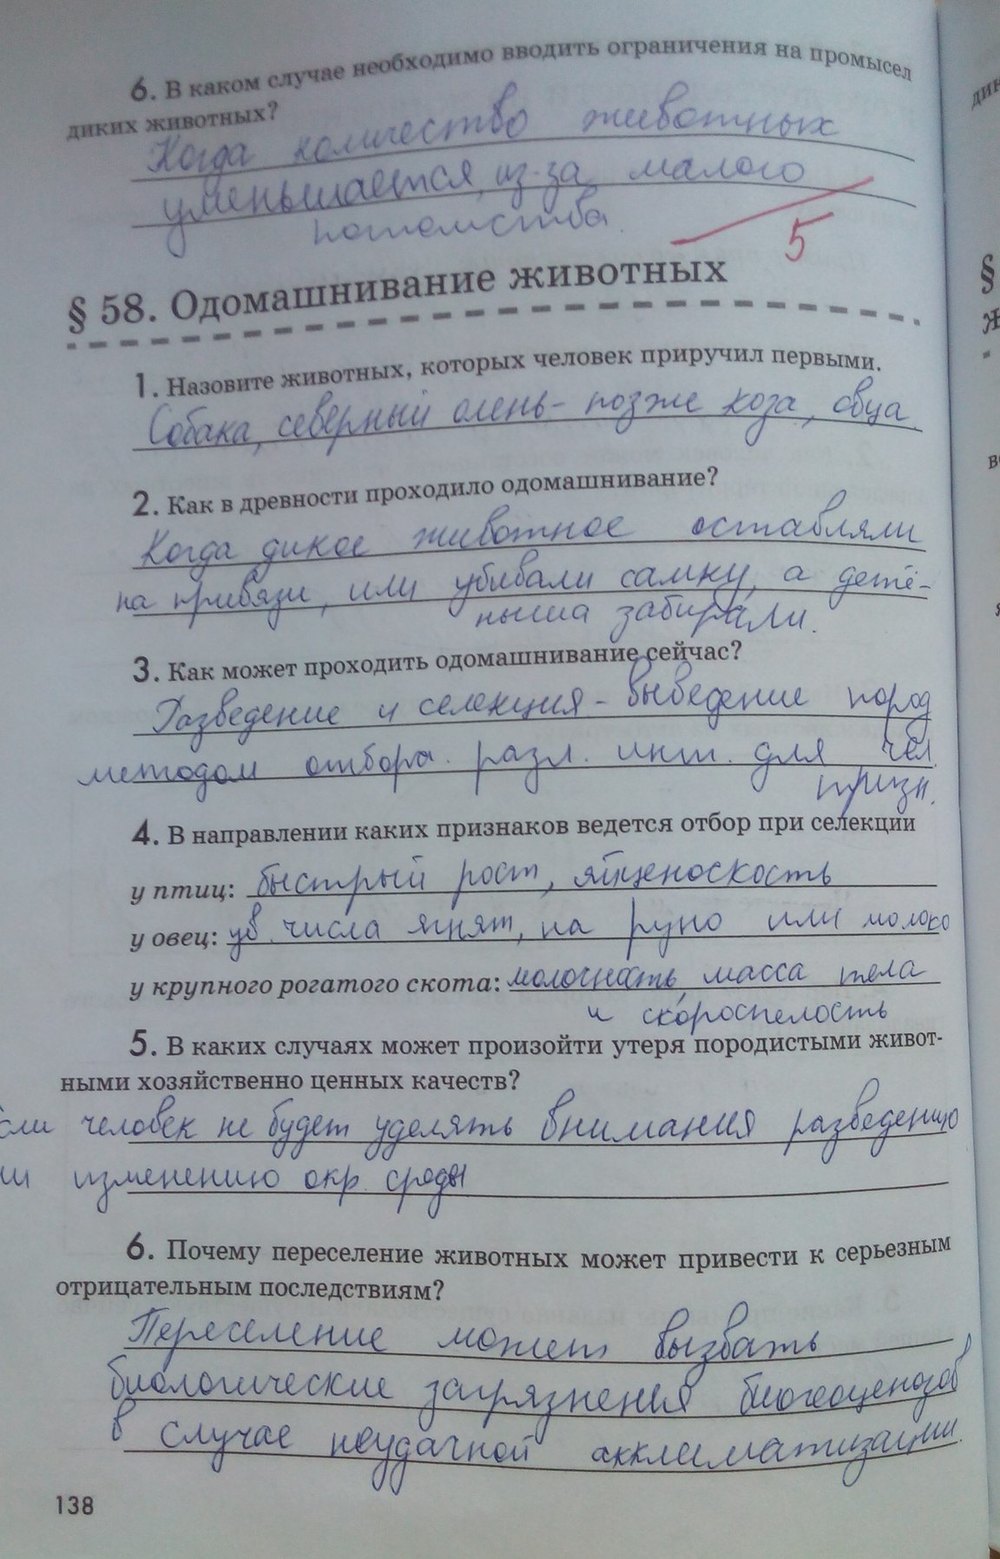 6. В каком случае необходимо вводить ограничения на промысел
диких животных?
Когда количество животных
уменьшается из-за малого
потомства.
5
§ 58. Одомашнивание животных
1. Назовите животных, которых человек приручил первыми.
Собака, северный олень - позже коза, овца
2. Как в древности проходило одомашнивание?
Когда дикое животное оставляли
на привязи, или убивали самку, а детё-
ныша забирали.
3. Как может проходить одомашнивание сейчас?
Разведение и селекция - выведение пород
методом отбора разл. инт. для чел.
призн.
4. В направлении каких признаков ведется отбор при селекции
у птиц: быстрый рост, яйценоскость
у овец: ув. числа ягнят, на руно или молоко
у крупного рогатого скота: молочность, масса тела
и скороспелость
5. В каких случаях может произойти утеря породистыми живот-
ными хозяйственно ценных качеств?
сли человек не будет уделять внимания разведению
ли изменению окр. среды
6. Почему переселение животных может привести к серьезным
отрицательным последствиям?
Переселение может вызвать
биологические загрязнения биогеоценозов
в случае неудачной акклиматизации.
138
§